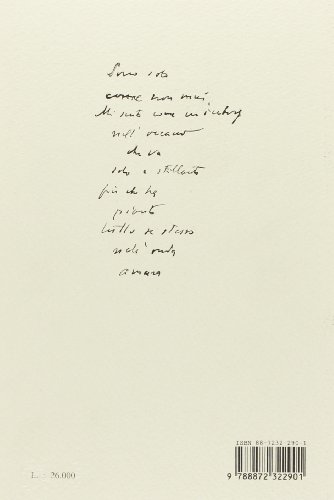 Sono solo
come non mai,
Mi sento come un iceberg
nell'oceano
che va
solo e
più che ha
pianto
tutto se stesso
nell'onda
amara
ISBN 88-7232-290-1
9 788872 322901
L. 26.000